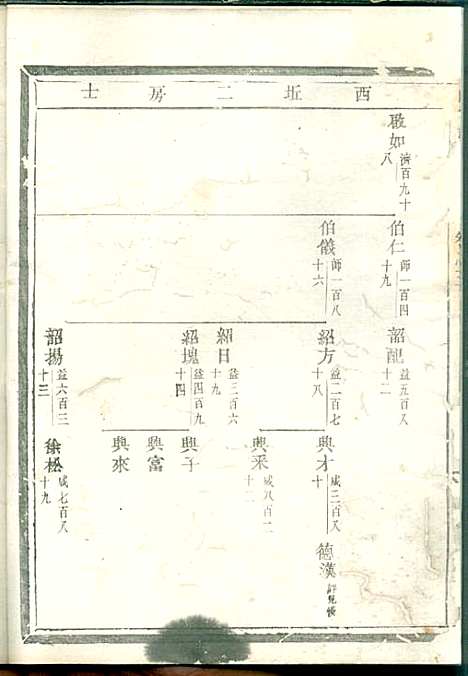 西坵二房士
敬如 濟百九十八
伯仁 師一百四十九
伯儀 師一百八十六
韶配 益五百八十二
紹方 益二百七十八
紹日 益三百六十九
紹塊 益四百九十四
韶揚 益六百三十三
興才 咸三百八十
興釆 咸八百二十二
興子
興富
興來
徐松 咸七百八十九
德漢 詳見後